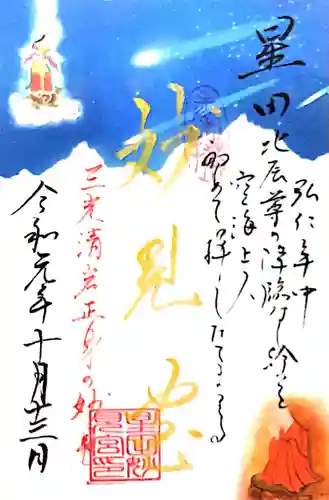 弘仁年中
星田
北辰尊の降臨なし給ふを
空海上人
初めて拝したてまつる
妙見宮
三光清岩正身の妙見
星田妙見宮印
令和元年十月十三日